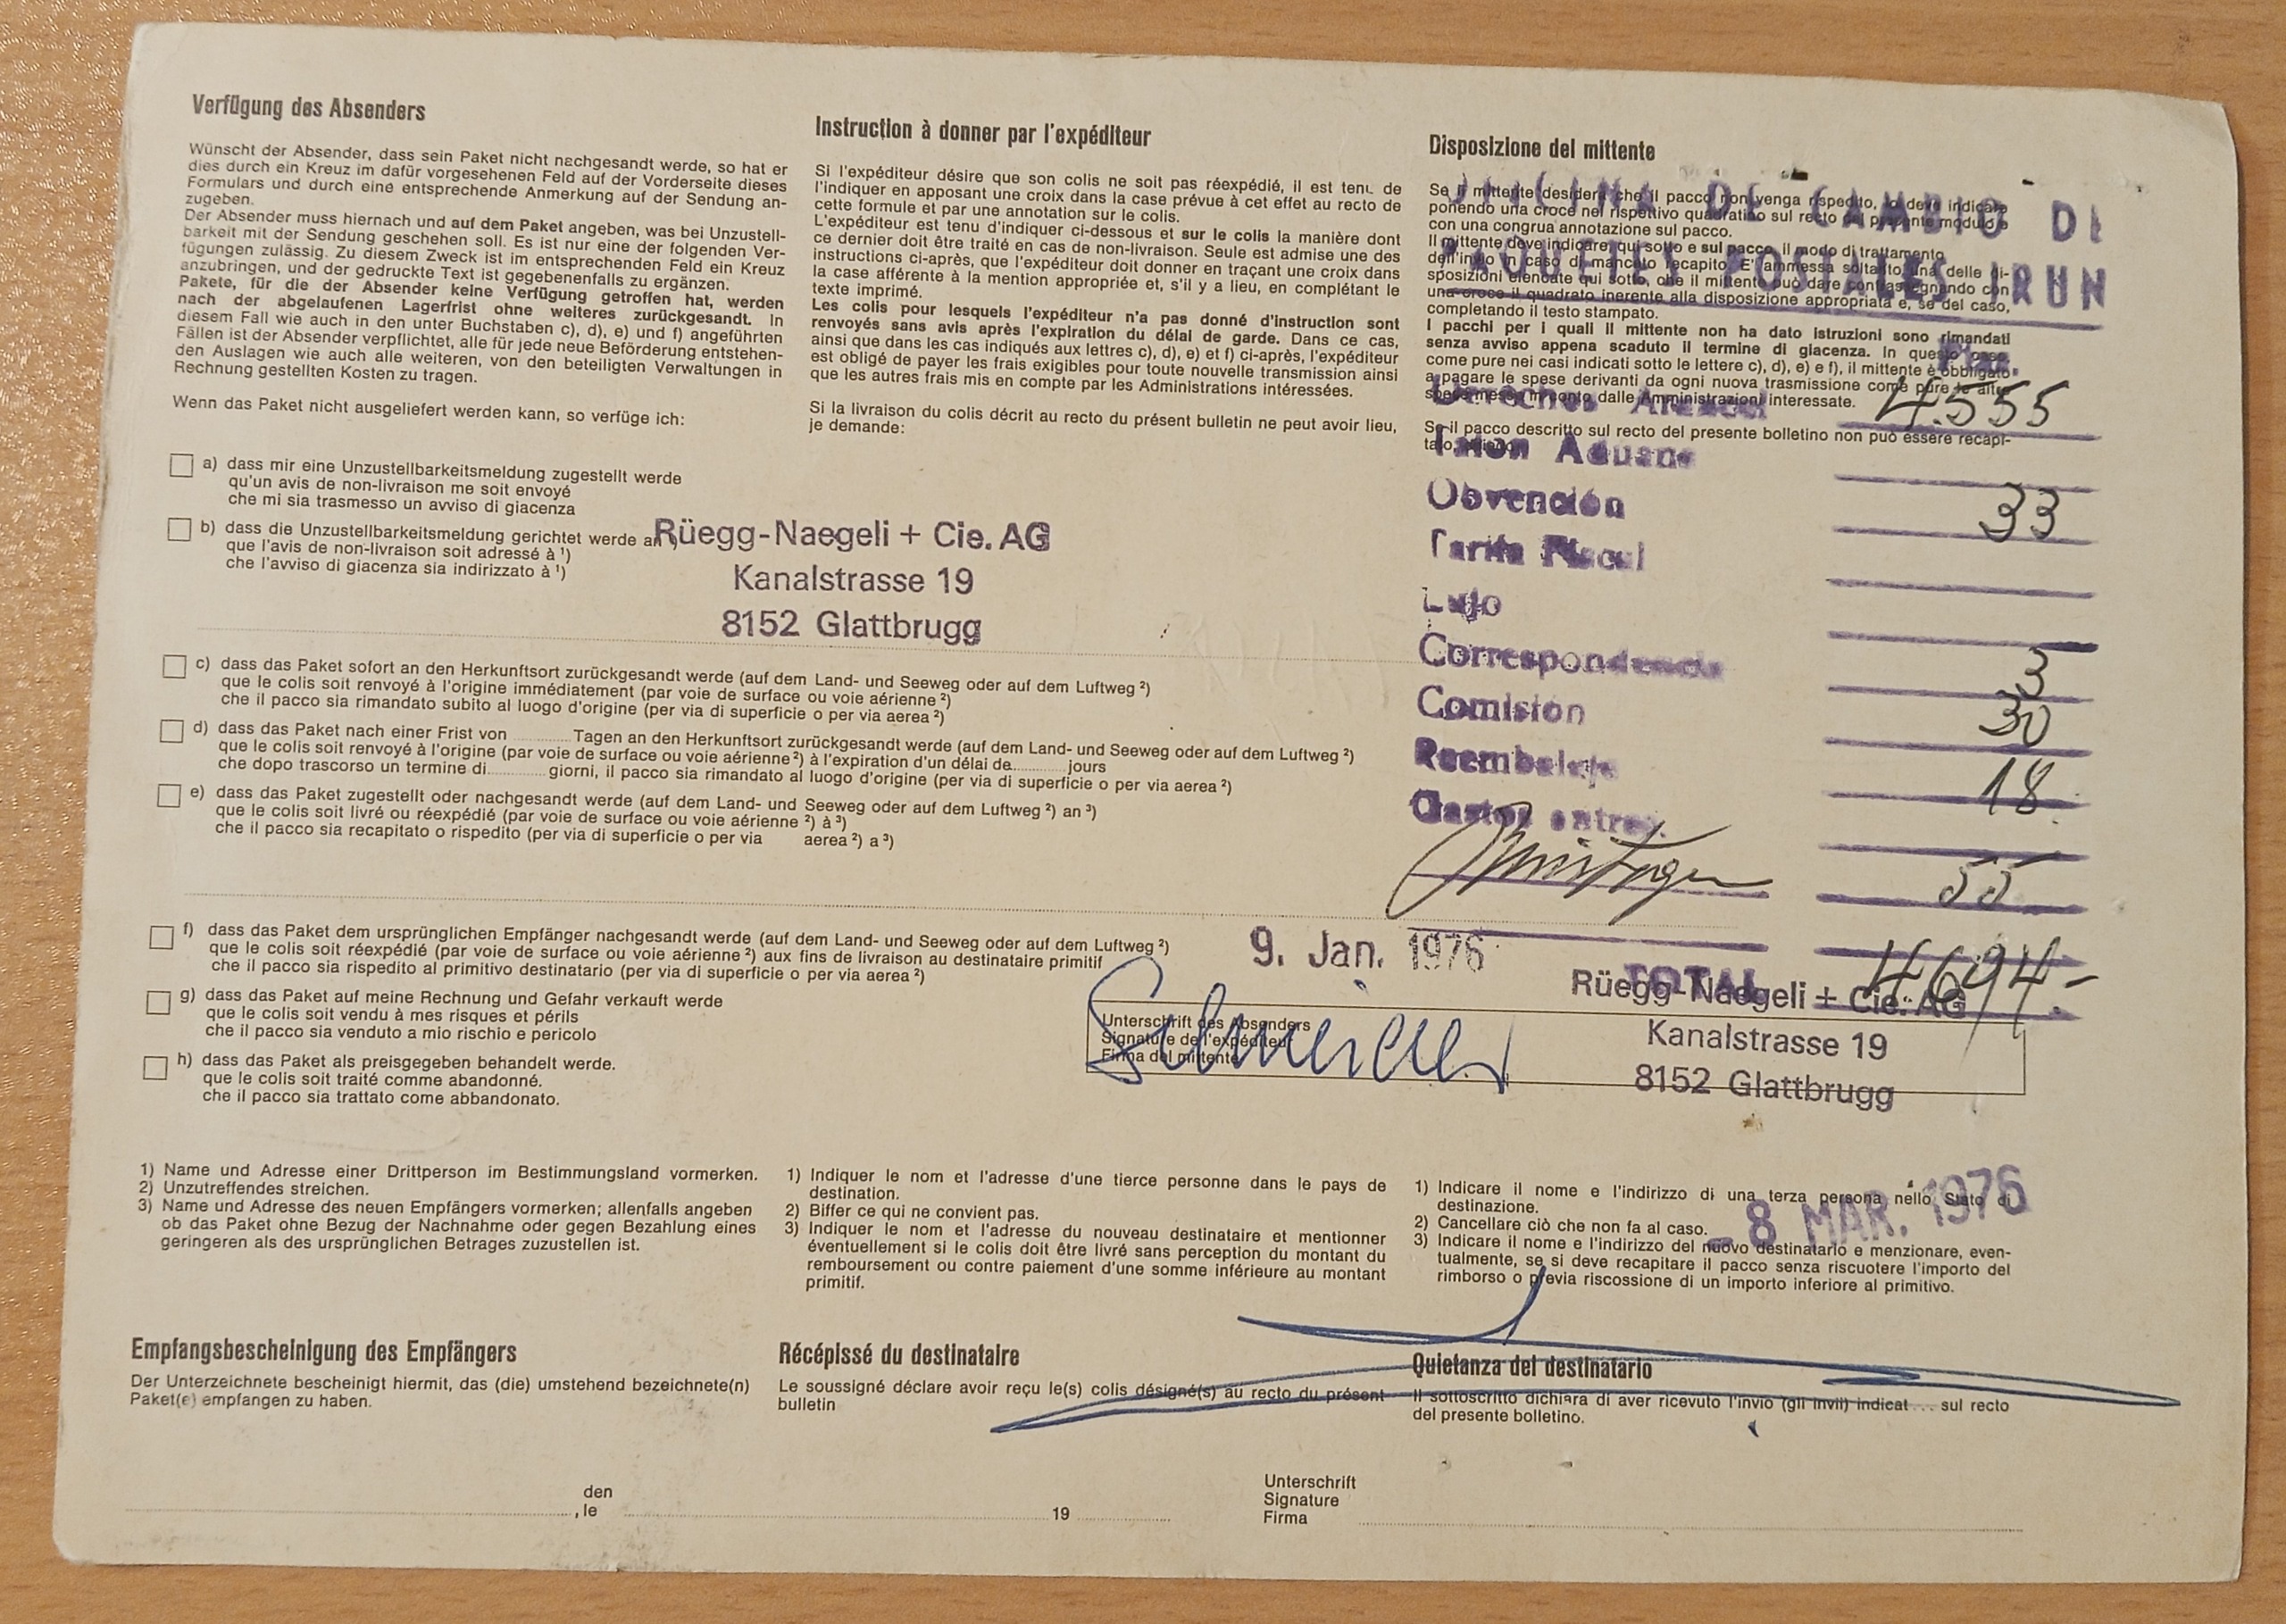 Verfügung des Absenders
Wünscht der Absender, dass sein Paket nicht nachgesandt werde, so hat er
dies durch ein Kreuz im dafür vorgesehenen Feld auf der Vorderseite dieses
Formulars und durch eine entsprechende Anmerkung auf der Sendung an-
zugeben.
Der Absender muss hiernach und auf dem Paket angeben, was bei Unzustell-
barkeit mit der Sendung geschehen soll. Es ist nur eine der folgenden Ver-
fügungen zulässig. Zu diesem Zweck ist im entsprechenden Feld ein Kreuz
anzubringen, und der gedruckte Text ist gegebenenfalls zu ergänzen.
Pakete, für die der Absender keine Verfügung getroffen hat, werden
nach der abgelaufenen Lagerfrist ohne weiteres zurückgesandt. In
diesem Fall wie auch in den unter Buchstaben c), d), e) und f) angeführten
Fällen ist der Absender verpflichtet, alle für jede neue Beförderung entstehen-
den Auslagen wie auch alle weiteren, von den beteiligten Verwaltungen in
Rechnung gestellten Kosten zu tragen.
Wenn das Paket nicht ausgeliefert werden kann, so verfüge ich:
Instruction à donner par l'expéditeur
Si l'expéditeur désire que son colis ne soit pas réexpédié, il est tenu de
l'indiquer en apposant une croix dans la case prévue à cet effet au recto de
cette formule et par une annotation sur le colis.
L'expéditeur est tenu d'indiquer ci-dessous et sur le colis la manière dont
ce dernier doit être traité en cas de non-livraison. Seule est admise une des
instructions ci-après, que l'expéditeur doit donner en traçant une croix dans
la case afférente à la mention appropriée et, s'il y a lieu, en complétant le
texte imprimé.
Les colis pour lesquels l'expéditeur n'a pas donné d'instruction sont
renvoyés sans avis après l'expiration du délai de garde. Dans ce cas,
ainsi que dans les cas indiqués aux lettres c), d), e) et f) ci-après, l'expéditeur
est obligé de payer les frais exigibles pour toute nouvelle transmission ainsi
que les autres frais mis en compte par les Administrations intéressées.
Si la livraison du colis décrit au recto du présent bulletin ne peut avoir lieu,
je demande:
Disposizione del mittente
Se il mittente desidera che il pacco non venga rispedito, lo deve indicare
ponendo una croce nel rispettivo quadratino sul recto del presente modulo e
con una congrua annotazione sul pacco.
Il mittente deve indicare, qui sotto e sul pacco, il modo di trattamento
dell'invio in caso di mancato recapito. E' ammessa soltanto una delle di-
sposizioni elencate qui sotto, che il mittente può dare contrassegnando con
una croce il quadrato inerente alla disposizione appropriata e, se del caso,
completando il testo stampato.
I pacchi per i quali il mittente non ha dato istruzioni sono rimandati
senza avviso appena scaduto il termine di giacenza. In questo caso,
come pure nei casi indicati sotto le lettere c), d), e) e f), il mittente è obbligato
a pagare le spese derivanti da ogni nuova trasmissione come pure le altre
spese messe in conto dalle Amministrazioni interessate.
Se il pacco descritto sul recto del presente bolletino non può essere recapi-
DE CAMBIO DE
PAQUETES POSTALES IRUN
Derechos Arancel 4.555
Aduana
Obvención 33
Tarifa Fiscal
Correspondencia 3
Comisión 30
Reembalaje 18
Gastos entreg.
55
TOTAL 4694.-
a) dass mir eine Unzustellbarkeitsmeldung zugestellt werde
qu'un avis de non-livraison me soit envoyé
che mi sia trasmesso un avviso di giacenza
b) dass die Unzustellbarkeitsmeldung gerichtet werde an
que l'avis de non-livraison soit adressé à ¹)
che l'avviso di giacenza sia indirizzato à ¹)
Rüegg-Naegeli + Cie. AG
Kanalstrasse 19
8152 Glattbrugg
c) dass das Paket sofort an den Herkunftsort zurückgesandt werde (auf dem Land- und Seeweg oder auf dem Luftweg ²)
que le colis soit renvoyé à l'origine immédiatement (par voie de surface ou voie aérienne ²)
che il pacco sia rimandato subito al luogo d'origine (per via di superficie o per via aerea ²)
d) dass das Paket nach einer Frist von ............ Tagen an den Herkunftsort zurückgesandt werde (auf dem Land- und Seeweg oder auf dem Luftweg ²)
que le colis soit renvoyé à l'origine (par voie de surface ou voie aérienne ²) à l'expiration d'un délai de............jours
che dopo trascorso un termine di............ giorni, il pacco sia rimandato al luogo d'origine (per via di superficie o per via aerea ²)
e) dass das Paket zugestellt oder nachgesandt werde (auf dem Land- und Seeweg oder auf dem Luftweg ²) an ³)
que le colis soit livré ou réexpédié (par voie de surface ou voie aérienne ²) à ³)
che il pacco sia recapitato o rispedito (per via di superficie o per via aerea ²) a ³)
f) dass das Paket dem ursprünglichen Empfänger nachgesandt werde (auf dem Land- und Seeweg oder auf dem Luftweg ²)
que le colis soit réexpédié (par voie de surface ou voie aérienne ²) aux fins de livraison au destinataire primitif
che il pacco sia rispedito al primitivo destinatario (per via di superficie o per via aerea ²)
g) dass das Paket auf meine Rechnung und Gefahr verkauft werde
que le colis soit vendu à mes risques et périls
che il pacco sia venduto a mio rischio e pericolo
h) dass das Paket als preisgegeben behandelt werde.
que le colis soit traité comme abandonné.
che il pacco sia trattato come abbandonato.
9. Jan. 1976
Unterschrift des Absenders
Signature de l'expéditeur
Firma del mittente
Rüegg-Naegeli + Cie. AG
Kanalstrasse 19
8152 Glattbrugg
1) Name und Adresse einer Drittperson im Bestimmungsland vormerken.
2) Unzutreffendes streichen.
3) Name und Adresse des neuen Empfängers vormerken; allenfalls angeben
ob das Paket ohne Bezug der Nachnahme oder gegen Bezahlung eines
geringeren als des ursprünglichen Betrages zuzustellen ist.
1) Indiquer le nom et l'adresse d'une tierce personne dans le pays de
destination.
2) Biffer ce qui ne convient pas.
3) Indiquer le nom et l'adresse du nouveau destinataire et mentionner
éventuellement si le colis doit être livré sans perception du montant du
remboursement ou contre paiement d'une somme inférieure au montant
primitif.
1) Indicare il nome e l'indirizzo di una terza persona nello Stato di
destinazione.
2) Cancellare ciò che non fa al caso.
3) Indicare il nome e l'indirizzo del nuovo destinatario e menzionare, even-
tualmente, se si deve recapitare il pacco senza riscuotere l'importo del
rimborso o previa riscossione di un importo inferiore al primitivo.
- 8 MAR. 1976
Empfangsbescheinigung des Empfängers
Der Unterzeichnete bescheinigt hiermit, das (die) umstehend bezeichnete(n)
Paket(e) empfangen zu haben.
Récépissé du destinataire
Le soussigné déclare avoir reçu le(s) colis désigné(s) au recto du présent
bulletin
Quietanza del destinatario
Il sottoscritto dichiara di aver ricevuto l'invio (gli invii) indicat.... sul recto
del presente bolletino.
den
, le
19
Unterschrift
Signature
Firma